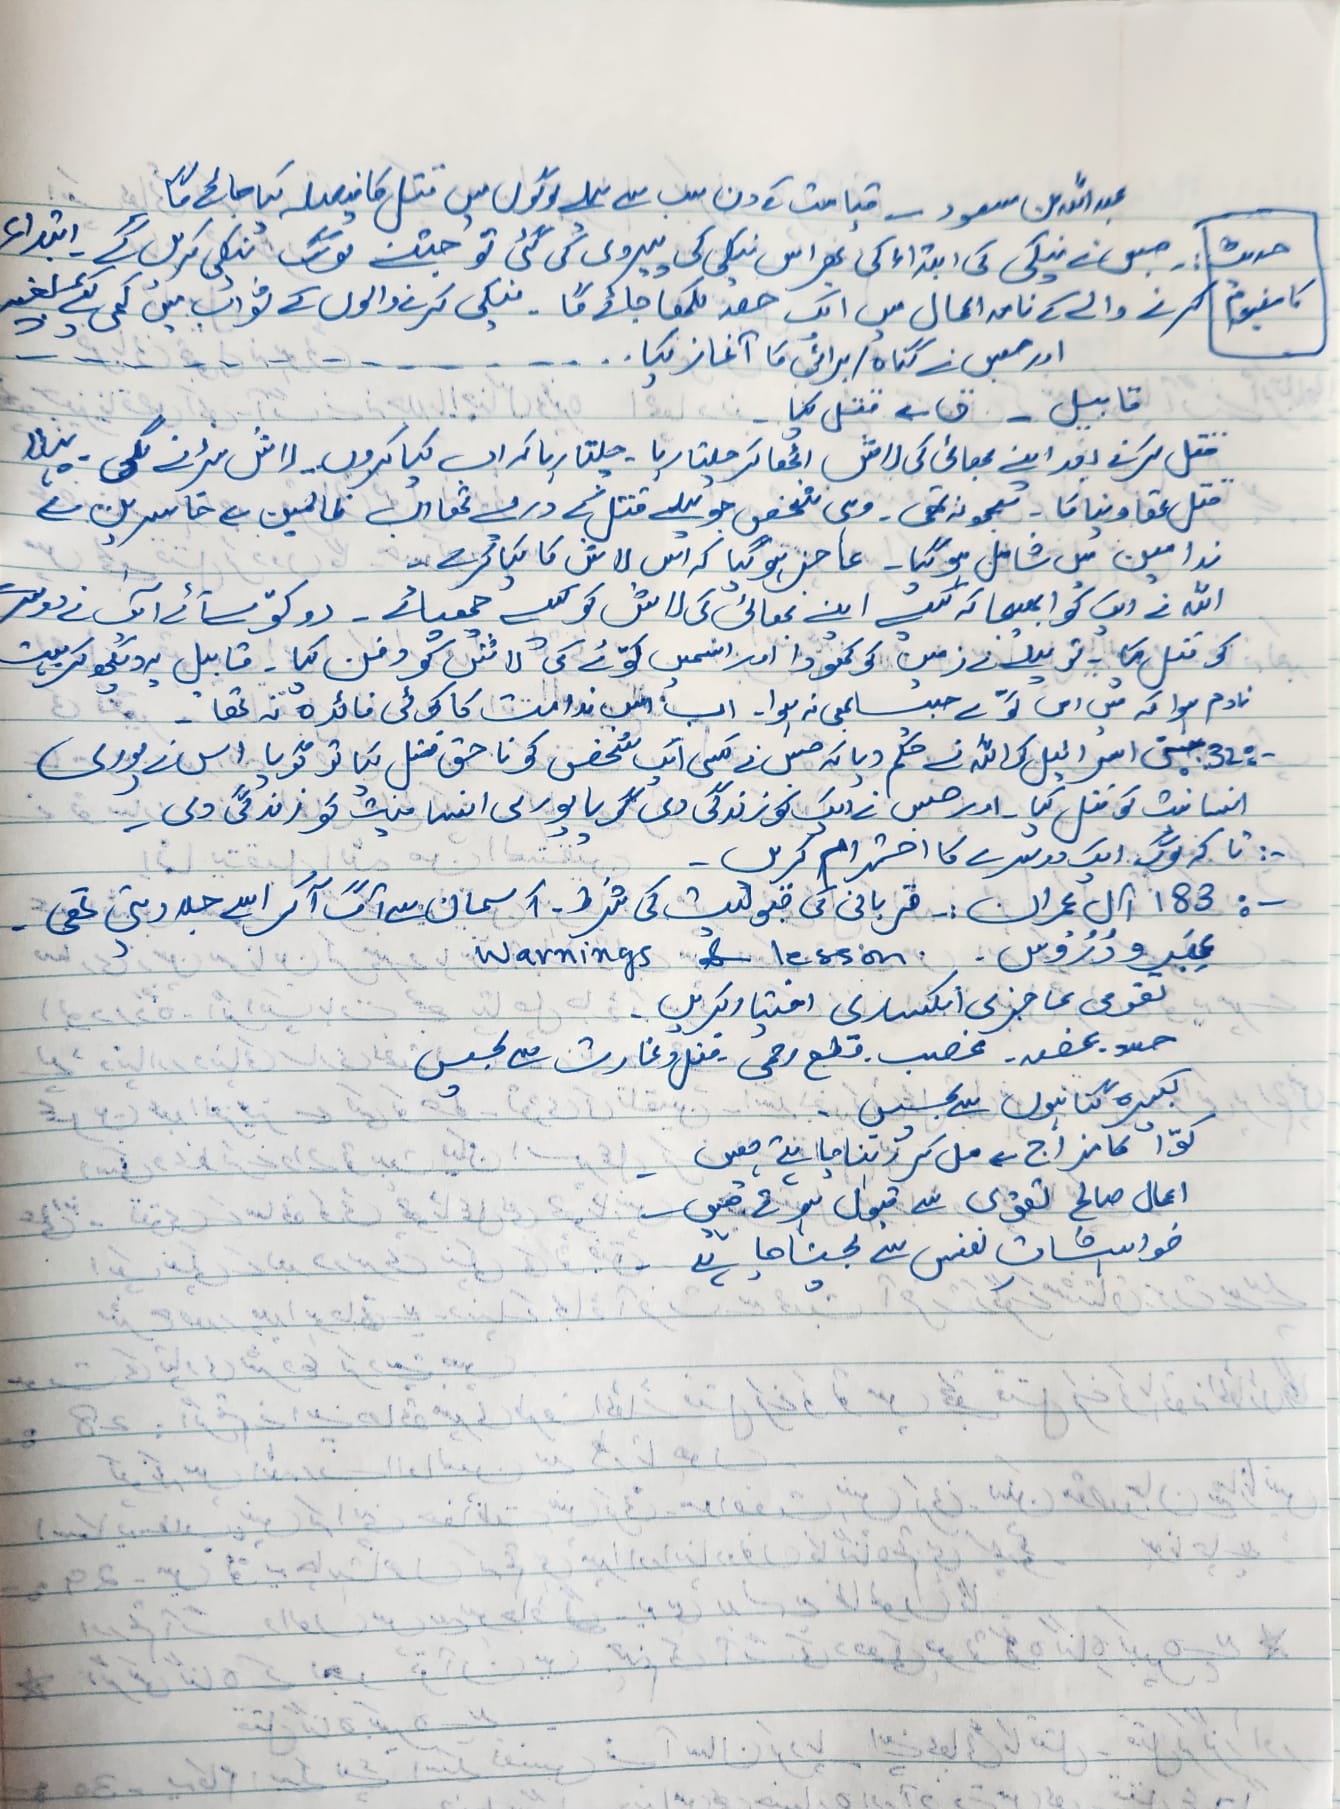 عبداللہ بن مسعود ۔ قیامت کے دن سب سے پہلے لوگوں میں قتل کا فیصلہ کیا جائے گا
حدیث :۔ جس نے نیکی کی ابتداء کی پھر اس نیکی کی پیروی کی گئی تو جتنے لوگ نیکی کریں گے ۔ ابتداء
کا مفہوم کرنے والے کے نامہ اعمال میں ایک حصہ لکھا جائے گا ۔ نیکی کرنے والوں کے ثواب میں کمی کیے بغیر
اور جس نے گناہ / برائی کا آغاز کیا ۔ ۔ ۔ ۔ ۔ ۔ ۔ ۔
قابیل ۔ قتل کیا ۔
قتل کرنے بعد اپنے بھائی کی لاش اٹھا کر چلتا رہا ۔ چلتا رہا کہ اب کیا کروں ۔ لاش سڑنے لگی ۔ پہلا
قتل تھا دنیا کا ۔ سمجھ نہ تھی ۔ وہی شخص جو پہلے قتل کے در پے تھا اب ظالمین سے خاسرین سے
ندامین میں شامل ہوگیا ۔ عاجز ہوگیا کہ اس لاش کا کیا کرے ۔
اللہ نے ایک کوا بھیجا کہ کیسے اپنے بھائی کی لاش کو کیسے چھپائے ۔ دو کوّے آئے ایک نے دوسرے
کو قتل کیا ۔ تو پہلے نے زمین کو کھودا اور اسمیں کوّے کی لاش کو دفن کیا ۔ قابیل یہ دیکھ کر بہت
نادم ہوا کہ میں اس کوّے جیسا بھی نہ ہوا ۔ اب اس ندامت کا کوئی فائدہ نہ تھا ۔
32:۔ بنی اسرائیل کو اللہ نے حکم دیا کہ جس نے کسی ایک شخص کو نا حق قتل کیا تو گویا اس نے پوری
انسانیت کو قتل کیا ۔ اور جس نے ایک کو زندگی دی گویا پوری انسانیت کو زندگی دی ۔
:۔ تاکہ لوگ ایک دوسرے کا احترام کریں ۔
:۔ 183 آل عمران :۔ قربانی کی قبولیت کی شرط ۔ آسمان سے آگ آکر اسے جلا دیتی تھی ۔
عِبَر و دُرُوس ۔ lesson & Warnings
تقوی عاجزی انکساری اختیار کریں ۔
حسد ۔ بغض ۔ غضب ۔ قطع رحمی ۔ قتل و غارت سے بچیں
کبیرہ گناہوں سے بچیں ۔
کوّا کا مزاج ہے مل کر رہنا چاہیے ہمیں ۔
اعمال صالح تقوی سے قبول ہوتے ہیں ۔
خواہشات نفس سے بچنا چاہیے ۔